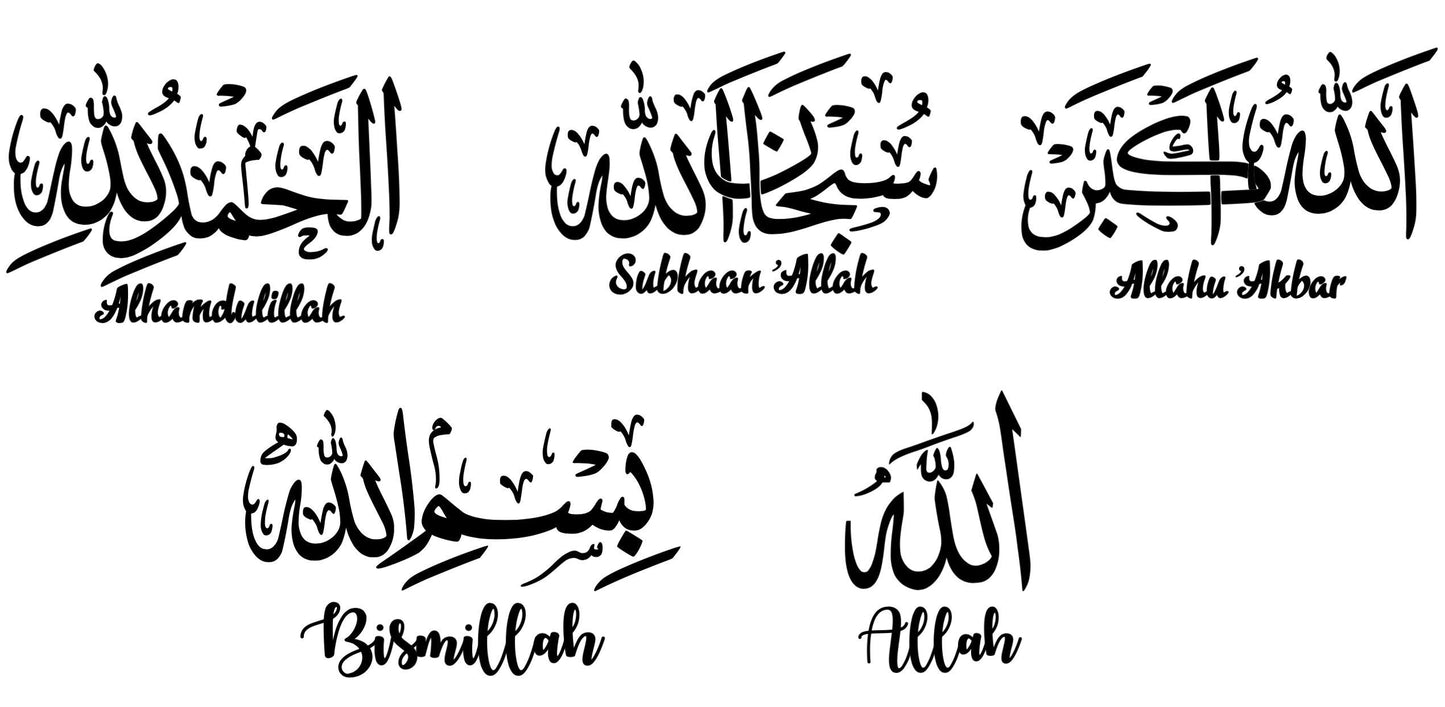 الحَمْدُ لِلّٰهِ
Alhamdulillah
سُبْحَانَ اللّٰه
Subhaan 'Allah
اَللّٰهُ اَكْبَرْ
Allahu 'Akbar
بِسْمِ اللّٰه
Bismillah
اللّٰهُ
Allah